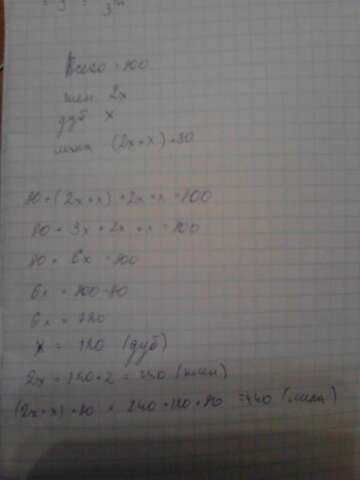 Всего - 800
клен 2x
дуб x
липа (2x+x)+80
80+(2x+x)+2x+x=800
80+3x+2x+x=800
80+6x=800
6x=800-80
6x=720
x=120 (дуб)
2x=120·2=240 (клен)
(2x+x)+80=240+120+80=440 (липа)